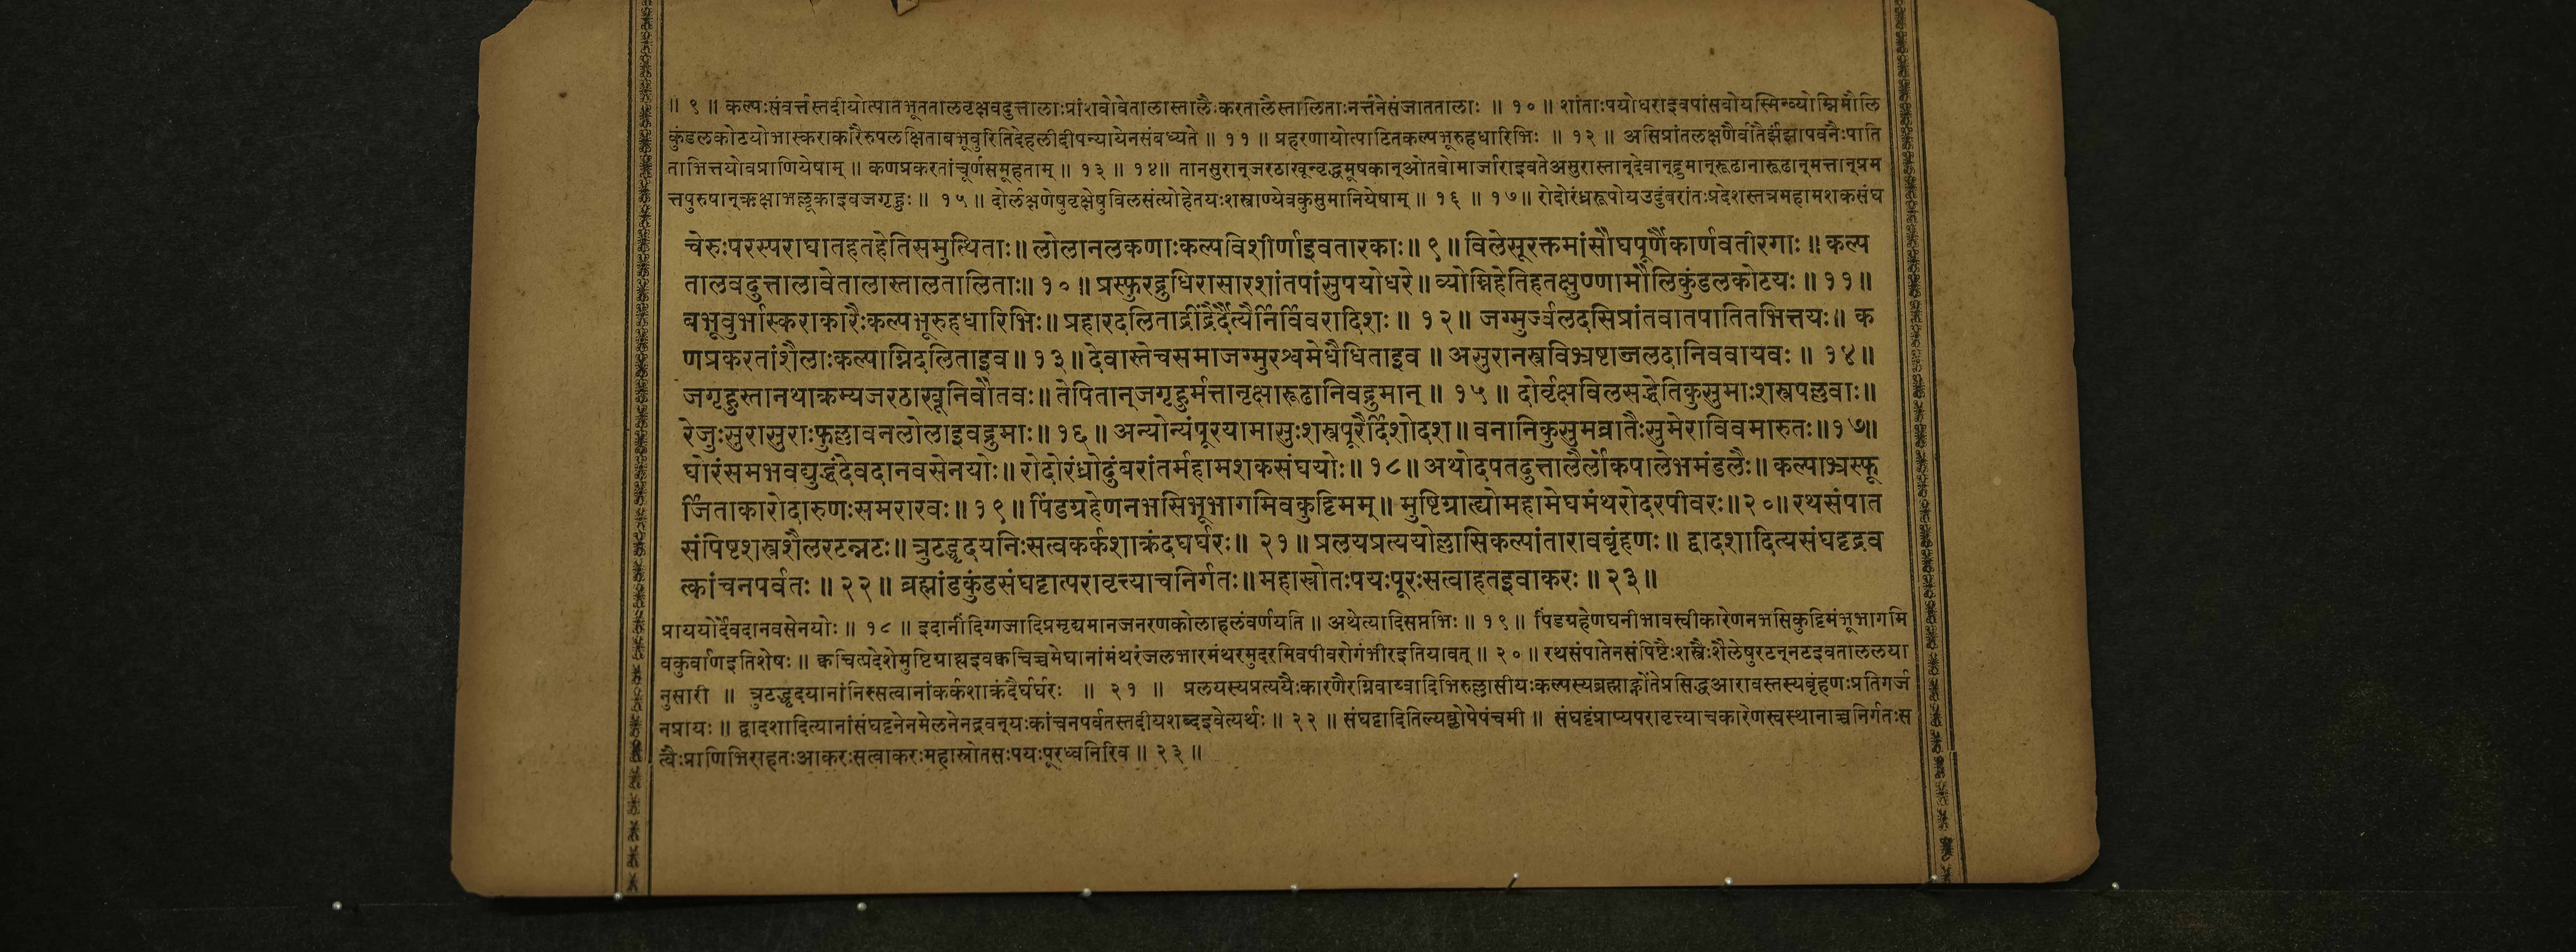 ॥ ९ ॥ कल्पःसंवर्त्तस्तदीयोत्पातभूततालवृक्षवदुत्तालाःप्रांशवोवेतालास्तालैःकरतालैस्तालिताःनर्त्तनेसंजाततालाः ॥ १० ॥ शांताःपयोधराइवपांसवोयस्मिन्व्योम्निमौलि
कुंडलकोटयोभास्कराकारैरुपलक्षिताबभूवुरितिदेहलीदीपन्यायेनसंबध्यते ॥ ११ ॥ प्रहरणायोत्पाटितकल्पभूरुहधारिभिः ॥ १२ ॥ असिप्रांतलक्षणैर्वातैर्झंझापवनैःपाति
ताभित्तयोवप्राणियेषाम् ॥ कणप्रकरतांचूर्णसमूहताम् ॥ १३ ॥ १४॥ तानसुरान्जरठाखून्वृद्धमूषकान्ओतवोमार्जाराइवतेअसुरास्तान्देवान्द्रुमान्रूढानारूढान्मत्तान्प्रम
त्तपुरुषान्ऋक्षाभल्लूकाइवजगृहुः ॥ १५ ॥ दोर्लक्षणेषुवृक्षेषुविलसंत्योहेतयःशस्त्राण्येवकुसुमानियेषाम् ॥ १६ ॥ १७॥ रोदोरंध्ररूपोयउदुंबरांतःप्रदेशस्तत्रमहामशकसंघ
चेरुःपरस्पराघातहतहेतिसमुत्थिताः॥ लोलानलकणाःकल्पविशीर्णाइवतारकाः॥ ९ ॥ विलेसूरक्तमांसौघपूर्णैकार्णवतीरगाः ॥ कल्प
तालवदुत्तालावेतालास्तालतालिताः॥ १० ॥ प्रस्फुरद्रुधिरासारशांतपांसुपयोधरे॥ व्योम्निहेतिहतक्षुण्णामौलिकुंडलकोटयः ॥ ११ ॥
बभूवुर्भास्कराकारैःकल्पभूरुहधारिभिः॥ प्रहारदलिताद्रींद्रैर्दैत्यैर्निर्विवरादिशः॥ १२ ॥ जग्मुर्ज्वलदसिप्रांतवातपातितभित्तयः॥ क
णप्रकरतांशैलाःकल्पाग्निदलिताइव॥ १३ ॥ देवास्तेचसमाजग्मुरश्वमेधैधिताइव ॥ असुरानस्त्रविभ्रष्टाञ्जलदानिववायवः ॥ १४॥
जगृहुस्तानथाक्रम्यजरठाखूनिवौतवः॥ तेपितान्जगृहुर्मत्तानृक्षारूढानिवद्रुमान् ॥ १५ ॥ दोर्वृक्षविलसद्धेतिकुसुमाःशस्त्रपल्लवाः॥
रेजुःसुरासुराःफुल्लावनलोलाइवद्रुमाः॥ १६ ॥ अन्योन्यंपूरयामासुःशस्त्रपूरैर्दिशोदश॥ वनानिकुसुमव्रातैःसुमेराविवमारुतः॥१७॥
घोरंसमभवद्युद्धंदेवदानवसेनयोः॥ रोदोरंध्रोदुंबरांतर्महामशकसंघयोः॥ १८ ॥ अथोदपतदुत्तालैर्लोकपालेभमंडलैः॥ कल्पाभ्रस्फू
र्जिताकारोदारुणःसमरारवः॥ १९ ॥ पिंडग्रहेणनभसिभूभागमिवकुट्टिमम्॥ मुष्टिग्रात्योमहामेघमंथरोदरपीवरः॥२०॥ रथसंपात
संपिष्टशस्त्रशैलरटन्नटः॥ त्रुटद्धृदयनिःसत्वकर्कशाक्रंदघर्घरः॥ २१ ॥ प्रलयप्रत्ययोल्लासिकल्पांतारावबृंहणः॥ द्वादशादित्यसंघट्टद्रव
त्कांचनपर्वतः ॥ २२ ॥ ब्रह्मांडकुंडसंघट्टात्परावृत्त्याचनिर्गतः॥ महास्त्रोतःपयःपूरःसत्वाहतइवाकरः ॥ २३ ॥
प्राययोर्देवदानवसेनयोः ॥ १८ ॥ इदानींदिग्गजादिप्रमृद्यमानजनरणकोलाहलंवर्णयति ॥ अथेत्यादिसप्तभिः ॥ १९ ॥ पिंडग्रहेणघनीभावस्वीकारेणनभसिकुट्टिमंभूभागमि
वकुर्वाणइतिशेषः ॥ क्वचित्प्रदेशेमुष्टिग्राह्यइवक्वचिच्चमेघानांमंथरंजलभारमंथरमुदरमिवपीवरोगंभीरइतियावत् ॥ २० ॥ रथसंपातेनसंपिष्टैःशस्त्रैःशैलेषुरटन्नटइवताललया
नुसारी ॥ त्रुटद्धृदयानांनिस्सत्वानांकर्कशाक्रंदैर्घर्घरः ॥ २१ ॥ प्रलयस्यप्रत्ययैःकारणैरग्निवाय्वादिभिरुल्लासीयःकल्पस्यब्रह्माह्नोंतेप्रसिद्धआरावस्तस्यबृंहणःप्रतिगर्ज
नप्रायः ॥ द्वादशादित्यानांसंघट्टनेनमेलनेनद्रवन्यःकांचनपर्वतस्तदीयशब्दइवेत्यर्थः ॥ २२ ॥ संघट्टादितिल्यब्लोपेपंचमी ॥ संघट्टंप्राप्यपरावृत्त्याचकारेणस्वस्थानाच्चनिर्गतःस
त्वैःप्राणिभिराहतःआकरःसत्वाकरःमहास्रोतसःपयःपूरध्वनिरिव ॥ २३ ॥